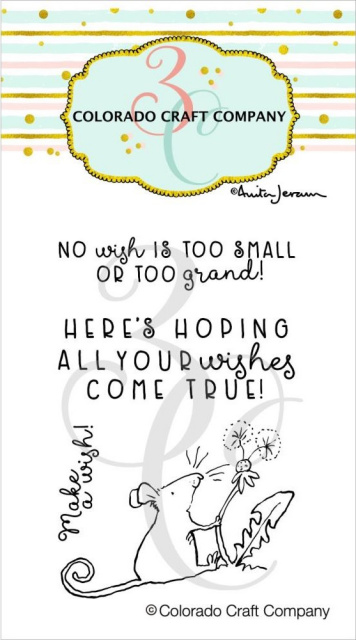 3C
COLORADO CRAFT COMPANY
©Anita Jeram
NO wish IS TOO SMALL
OR TOO grand!
HERE'S HOPING
ALL YOUR wishes
COME TRUE!
Make
a wish!
©Colorado Craft Company